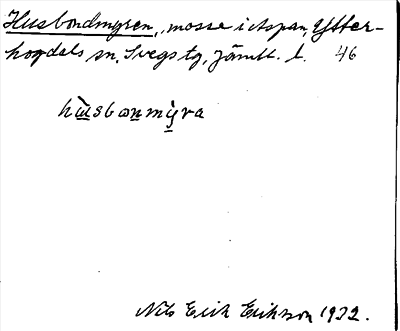 Husbondmyren, mosse i Aspan, Ytter-
hogdals sn, Svegs tg, Jämtl. l. 46
hùsbɷnmỳra
Nils Erik Eriksson 1932.